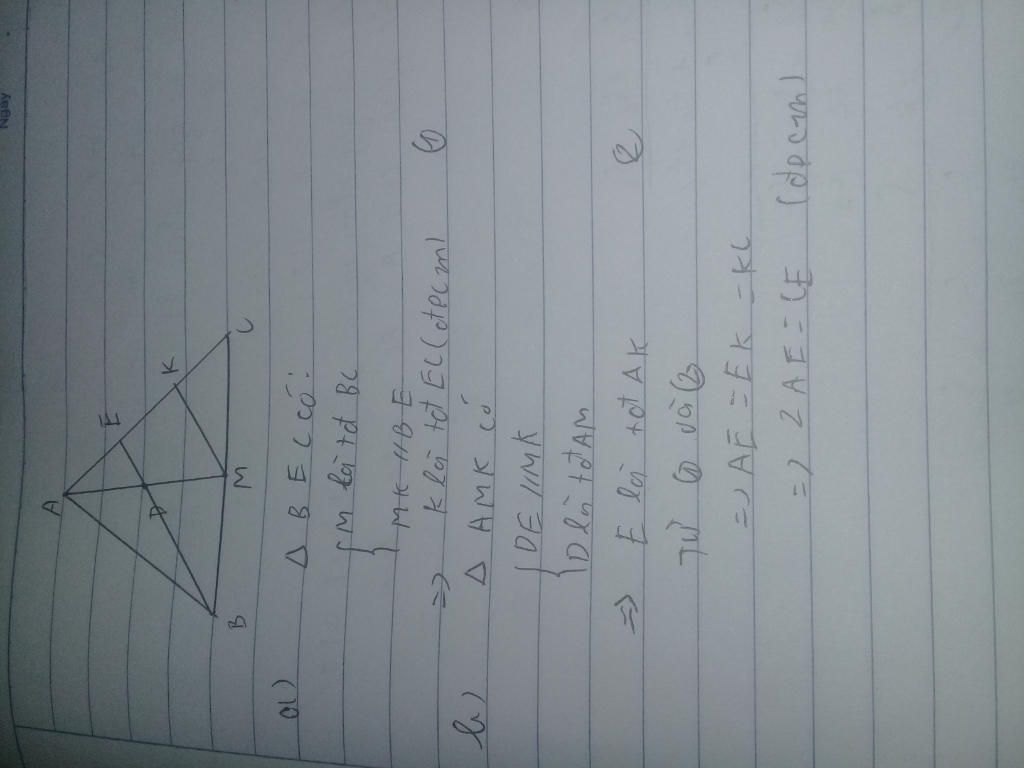 Ngày
A
E
K
D
B
M
C
a) Δ BEC có:
{ M là tđ BC
MK // BE
=> K là tđ EC (đpcm) (1)
b) Δ AMK có
{ DE // MK
D là tđ AM
=> E là tđ AK (2)
Từ (1) và (2)
=> AE = EK = KC
=> 2AE = CE (đpcm)